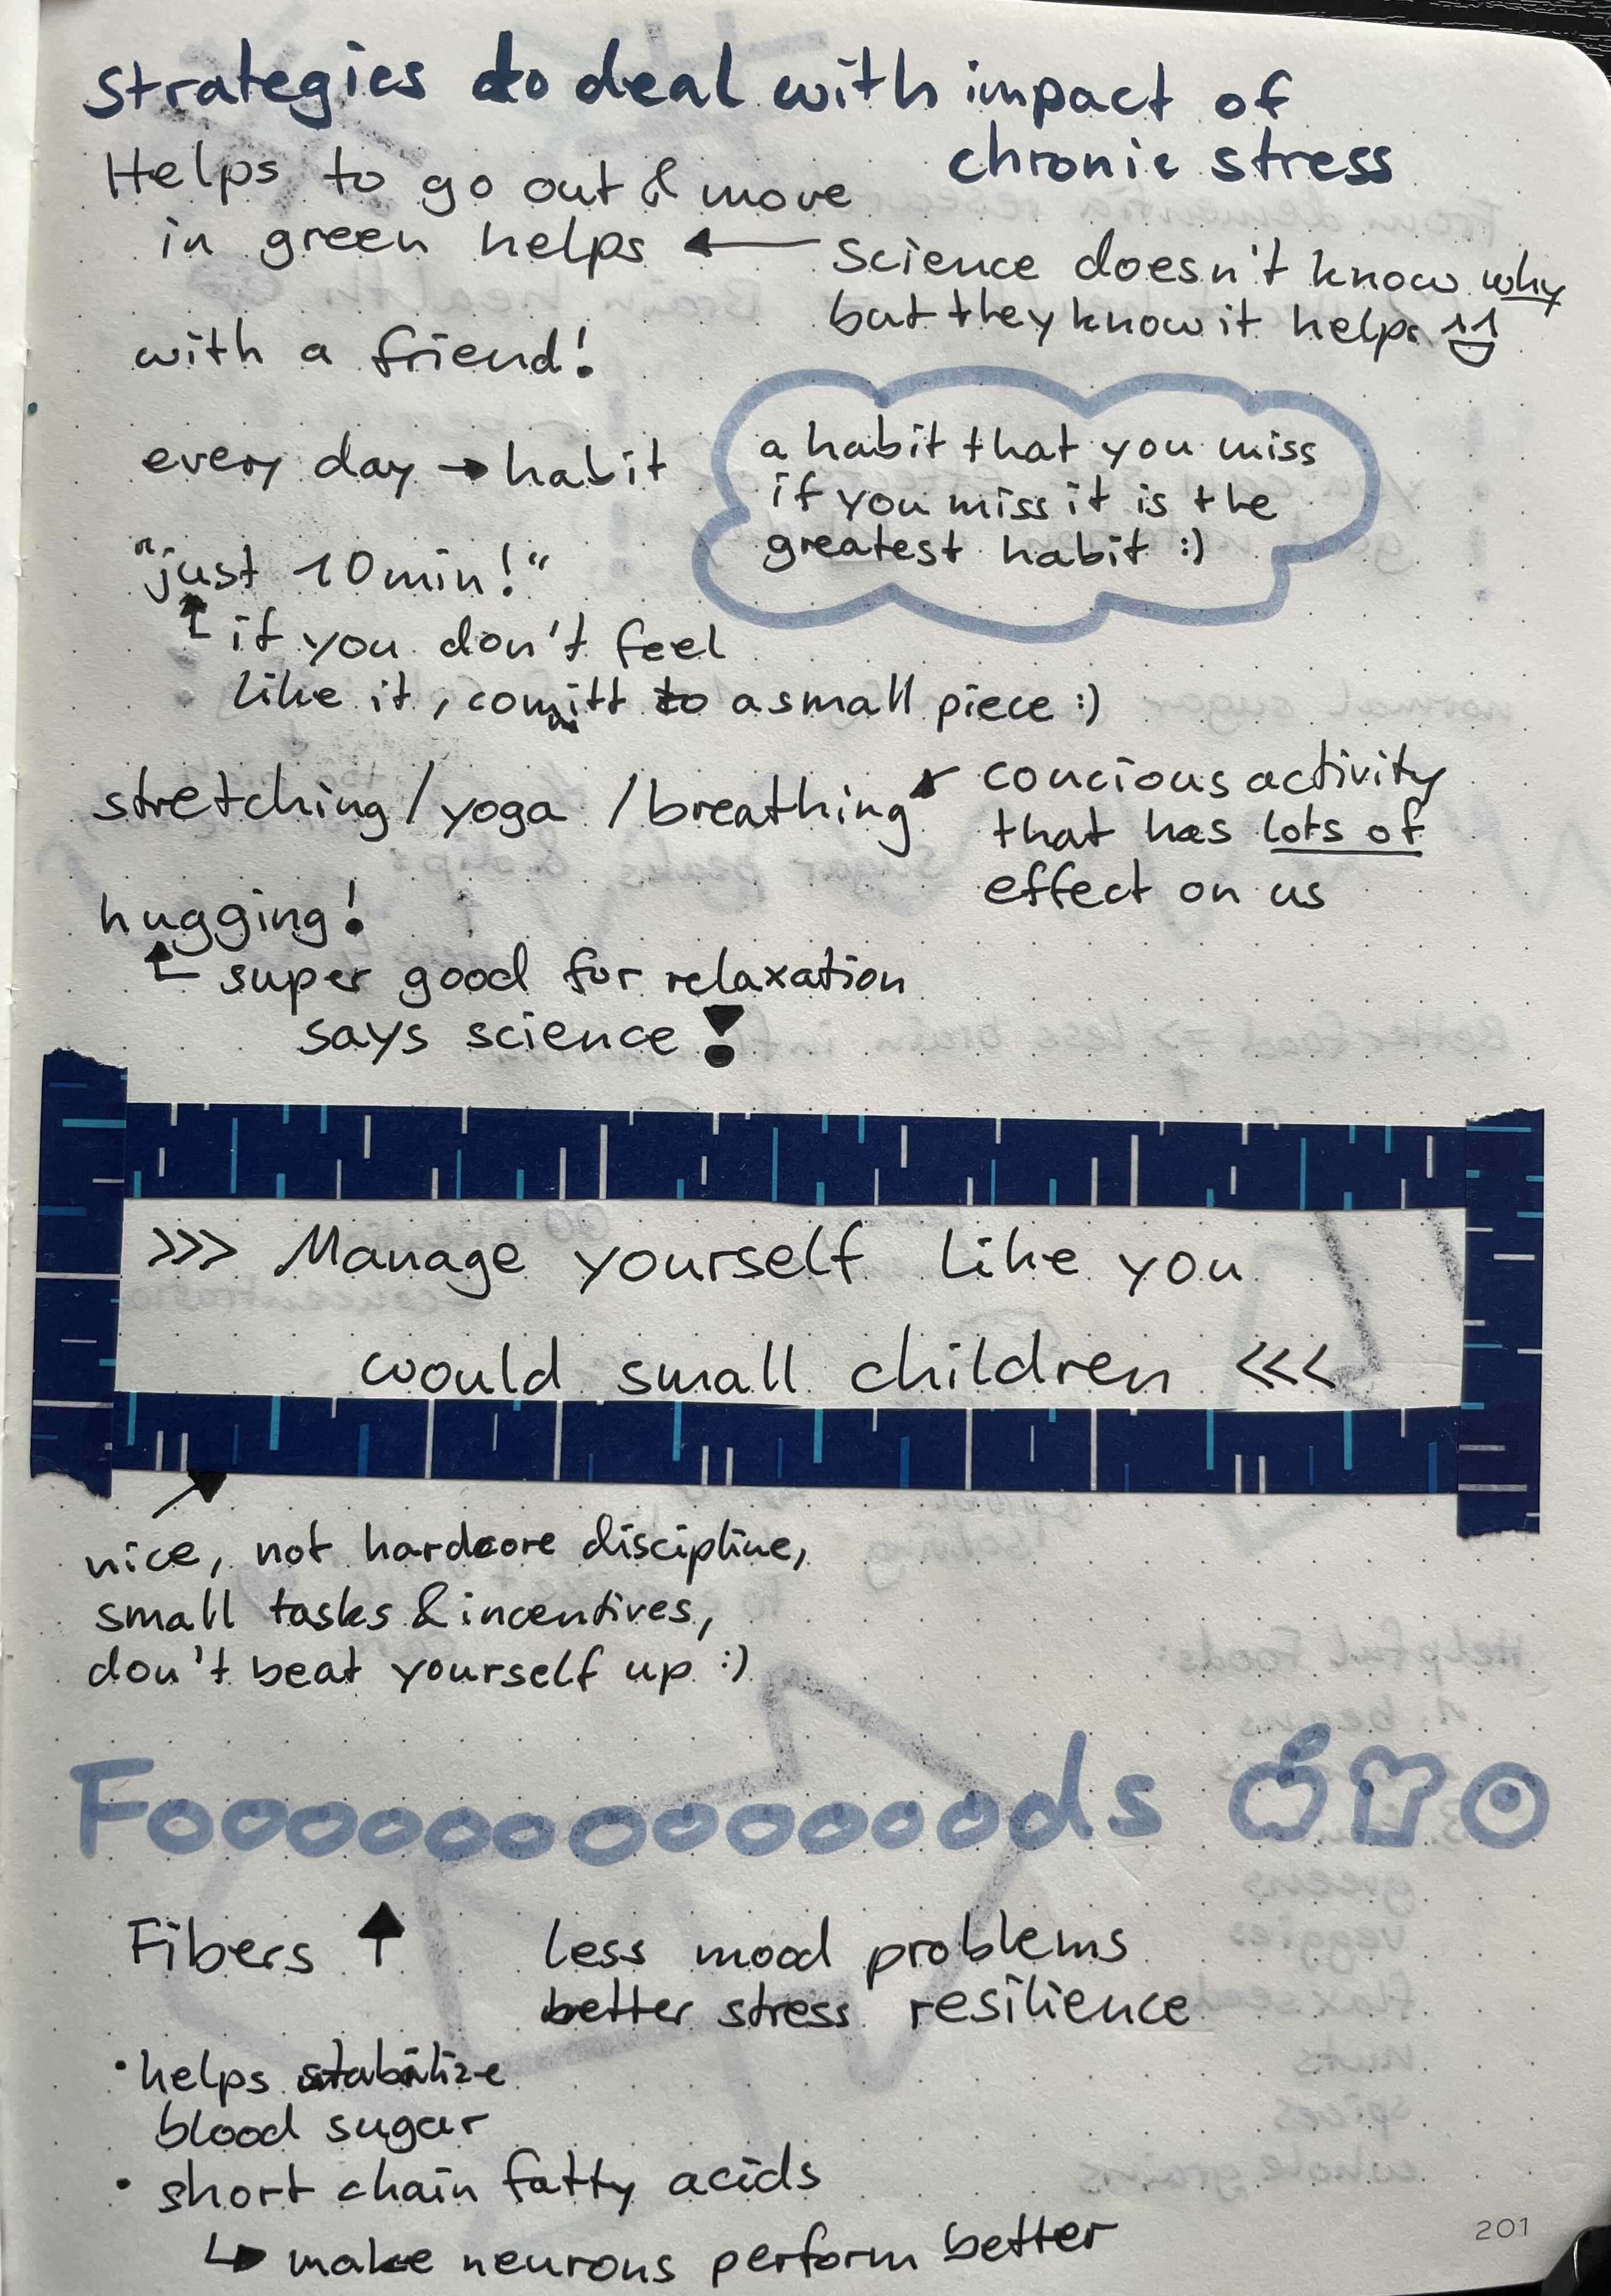 strategies to deal with impact of
chronic stress
Helps to go out & move
in green helps ←
science doesn't know why
but they know it helps
with a friend!
every day → habit
a habit that you miss
if you miss it is the
greatest habit :)
"just 10 min!"
if you don't feel
like it, committ to a small piece :)
stretching / yoga / breathing
concious activity
that has lots of
effect on us
hugging!
super good for relaxation
says science!
>>> Manage yourself like you
would small children <<<
nice, not hardcore discipline,
small tasks & incentives,
don't beat yourself up :)
Fooooooooooooods
Fibers ↑
less mood problems
better stress resilience
• helps stabilize
blood sugar
• short chain fatty acids
↳ make neurons perform better
201